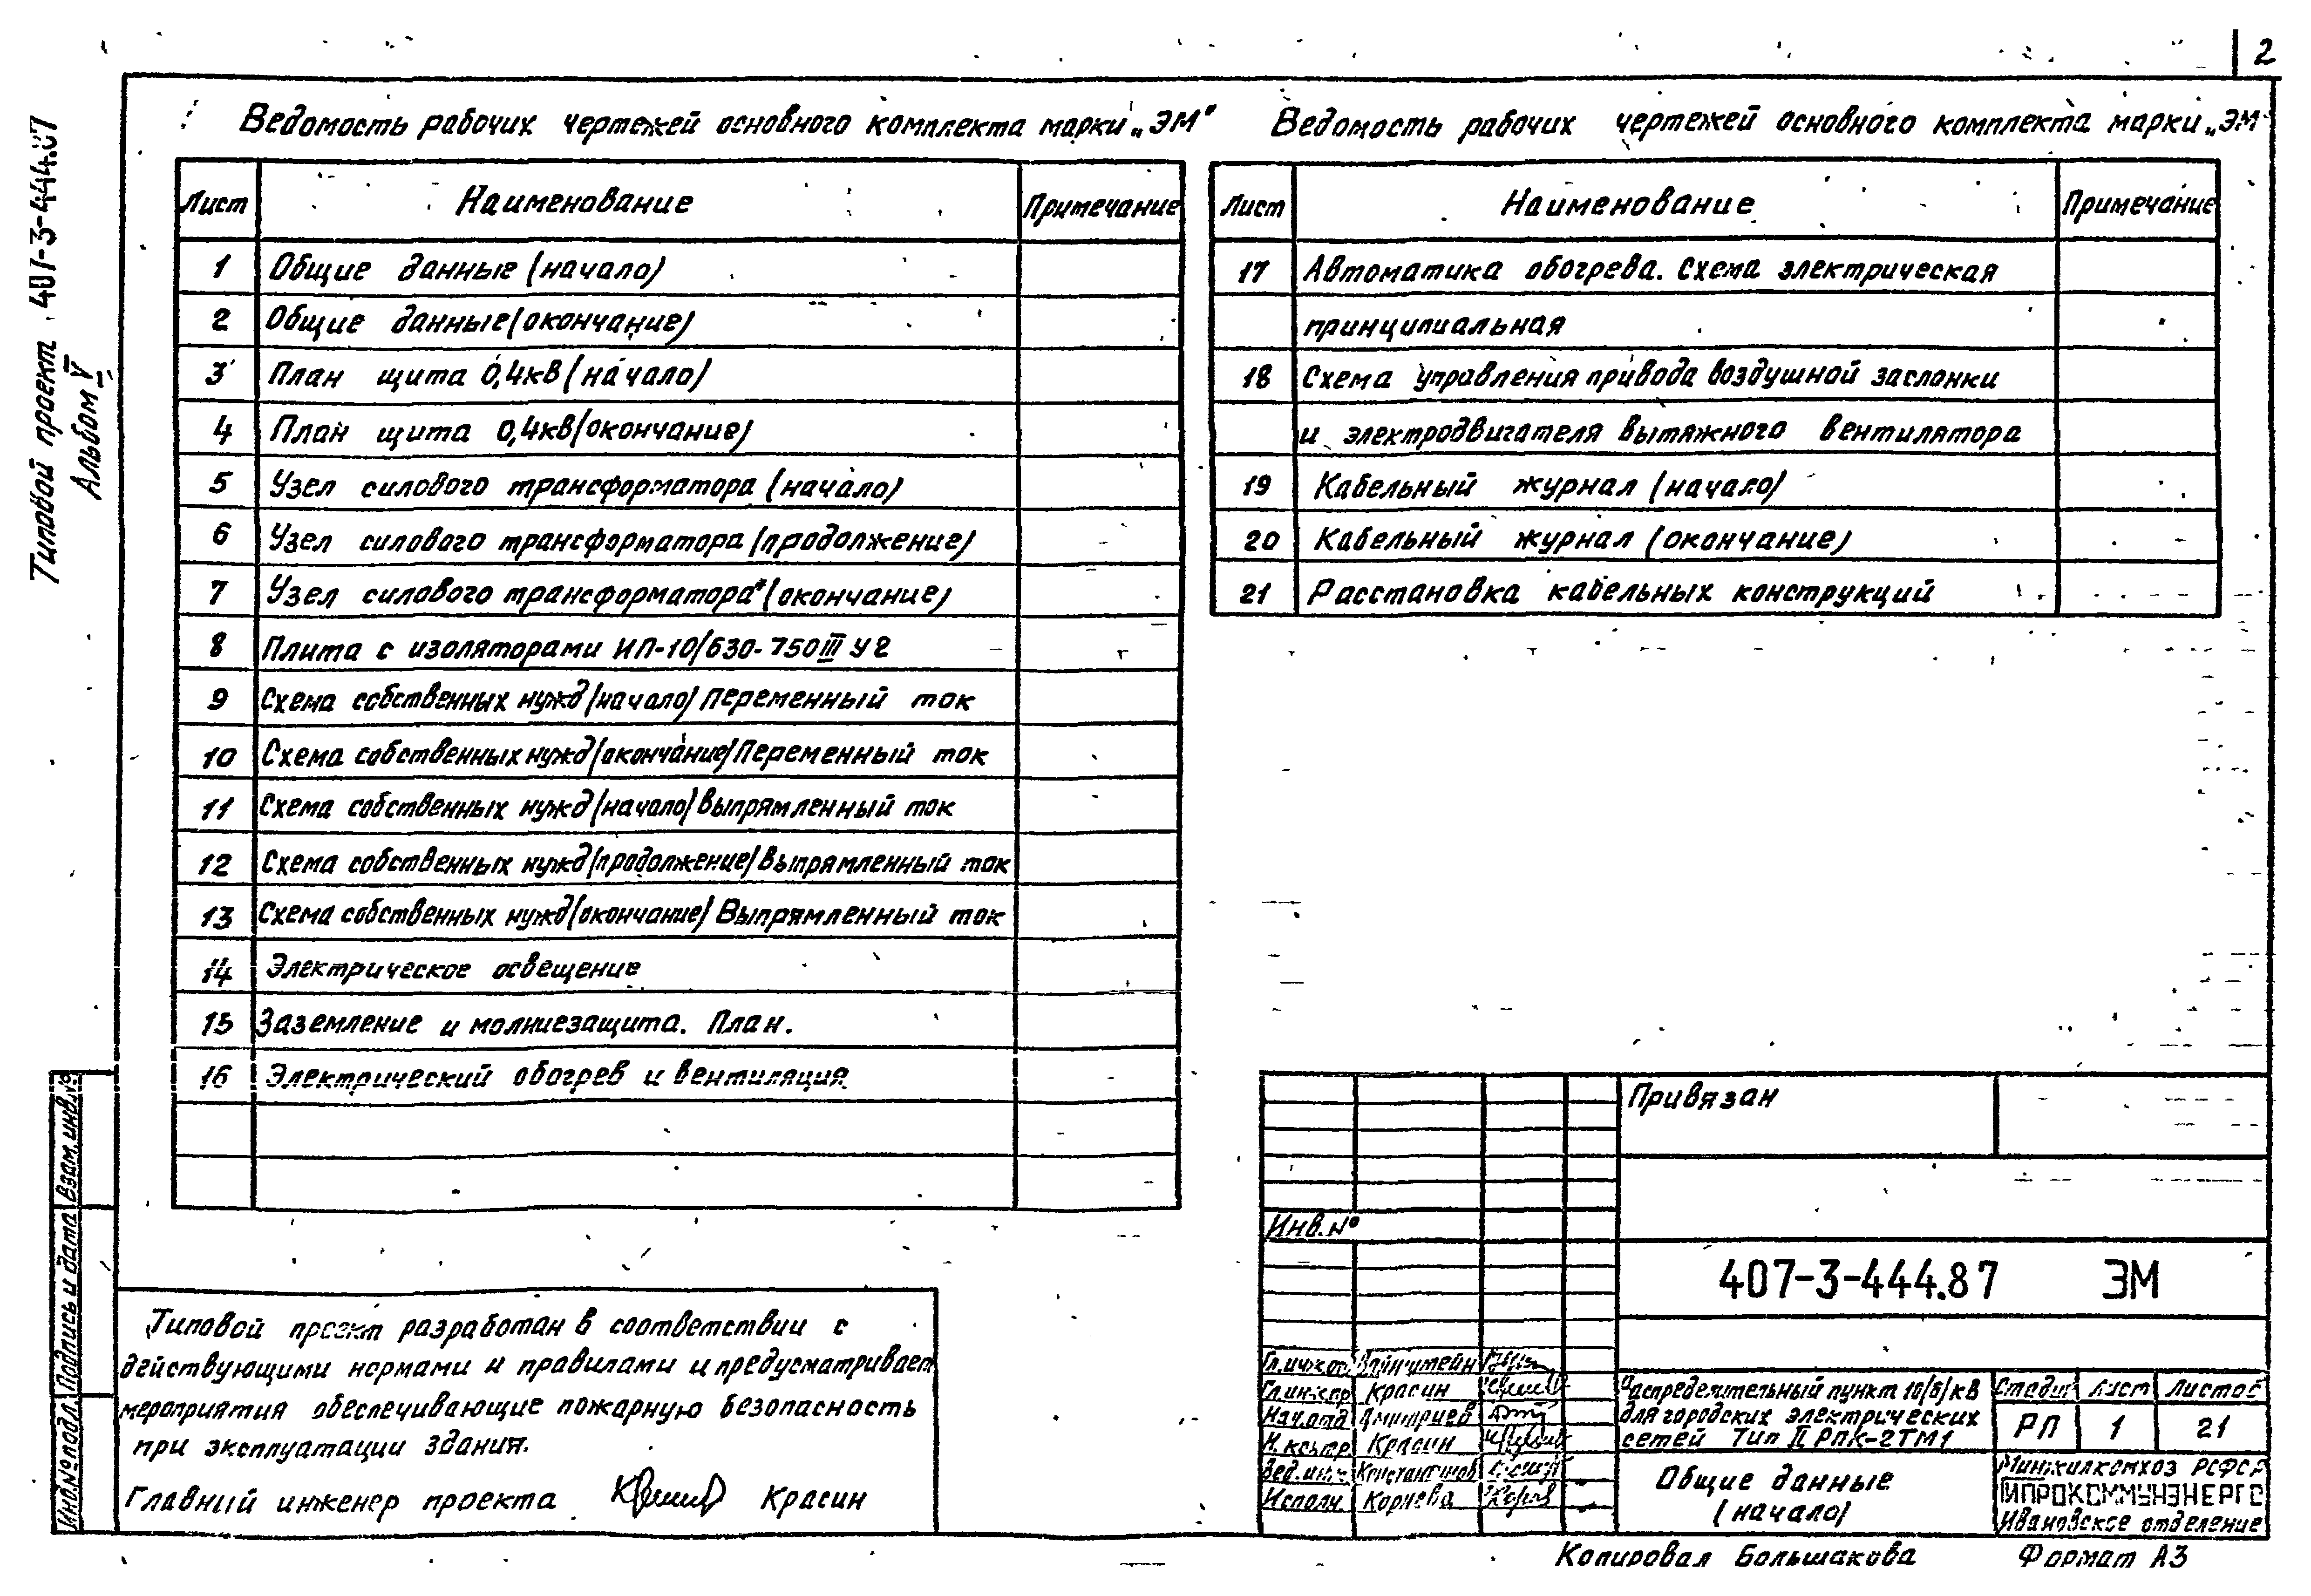 2
Типовой проект 407-3-444.87
Альбом V
Ведомость рабочих чертежей основного комплекта марки „ЭМ"
Лист Наименование Примечание
1 Общие данные (начало)
2 Общие данные (окончание)
3 План щита 0,4кВ (начало)
4 План щита 0,4кВ (окончание)
5 Узел силового трансформатора (начало)
6 Узел силового трансформатора (продолжение)
7 Узел силового трансформатора (окончание)
8 Плита с изоляторами ИП-10/630-750 III У2
9 Схема собственных нужд (начало) Переменный ток
10 Схема собственных нужд (окончание) Переменный ток
11 Схема собственных нужд (начало) Выпрямленный ток
12 Схема собственных нужд (продолжение) Выпрямленный ток
13 Схема собственных нужд (окончание) Выпрямленный ток
14 Электрическое освещение
15 Заземление и молниезащита. План.
16 Электрический обогрев и вентиляция
Ведомость рабочих чертежей основного комплекта марки „ЭМ
Лист Наименование Примечание
17 Автоматика обогрева. Схема электрическая
принципиальная
18 Схема управления привода воздушной заслонки
и электродвигателя вытяжного вентилятора
19 Кабельный журнал (начало)
20 Кабельный журнал (окончание)
21 Расстановка кабельных конструкций
Взам. инв. №
Подпись и дата
Инв. № подл.
Типовой проект разработан в соответствии с
действующими нормами и правилами и предусматривает
мероприятия обеспечивающие пожарную безопасность
при эксплуатации здания.
Главный инженер проекта Красин
Привязан
Инв. №
407-3-444.87 ЭМ
Гл. инж. от. Вайнштейн
Гл. инж. пр. Красин
Нач. отд. Дмитриев
Н. контр. Красин
Вед. инж. Константинов
Исполн. Корнева
Распределительный пункт 10(6)кВ
для городских электрических
сетей Тип II РПК-2ТМ1
Стадия Лист Листов
РП 1 21
Общие данные
(начало)
Минжилкомхоз РСФСР
ГИПРОКОММУНЭНЕРГО
Ивановское отделение
Копировал Большакова Формат А3